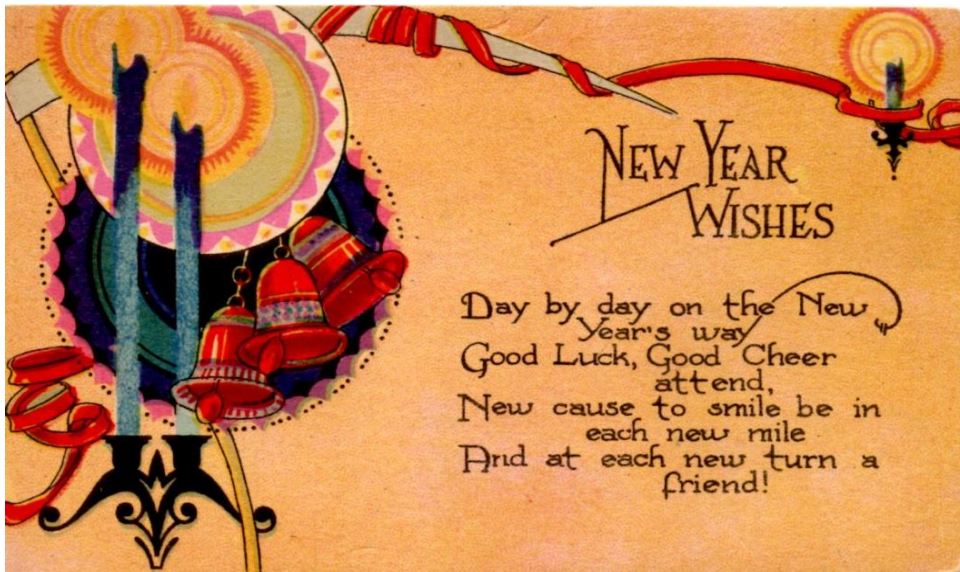 New Year
Wishes
Day by day on the New
Year's way
Good Luck, Good Cheer
attend,
New cause to smile be in
each new mile
And at each new turn a
friend!